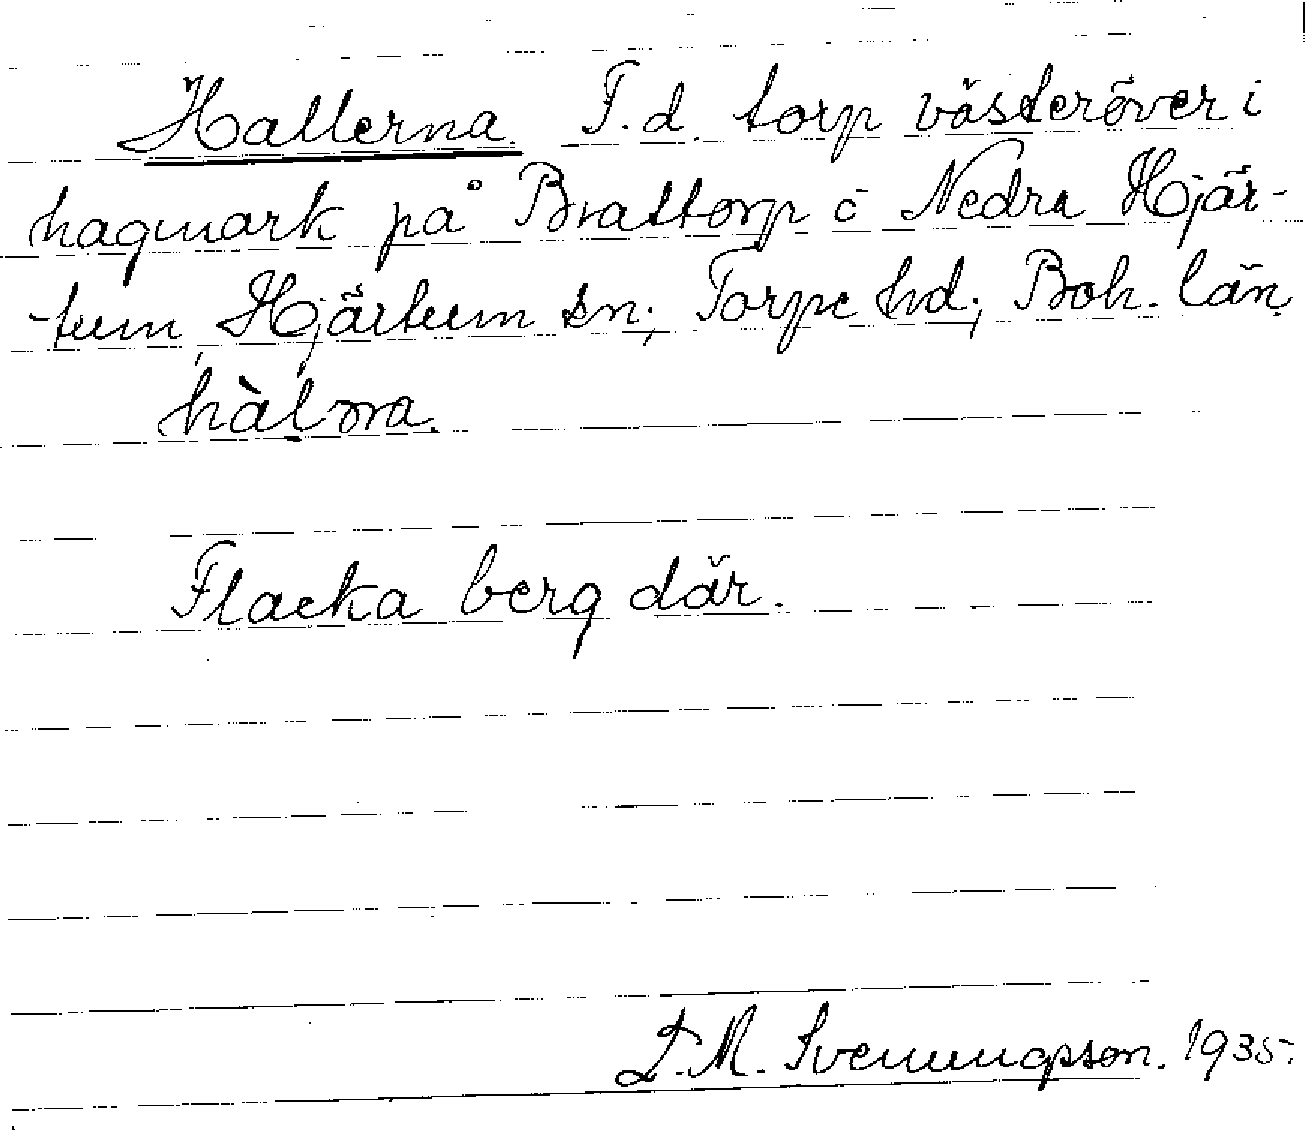 Hallerna. F.d. torp västeröver i
hagmark på Brattorp i Nedra Hjär-
tum, Hjärtum sn; Torpe hd; Boh. län.
Flacka berg där.
Svenungsson. 1935.